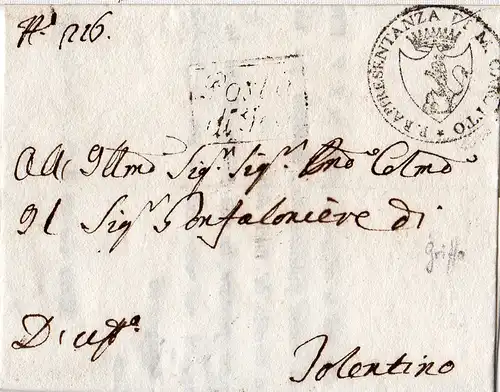 N.º 226.
RAPPRESENTANZA DI M.
All' Illmo Sig.r Sig.r Pno Colmo
Il Sig.r Gonfaloniere di
griffo
D'uff.o
Tolentino